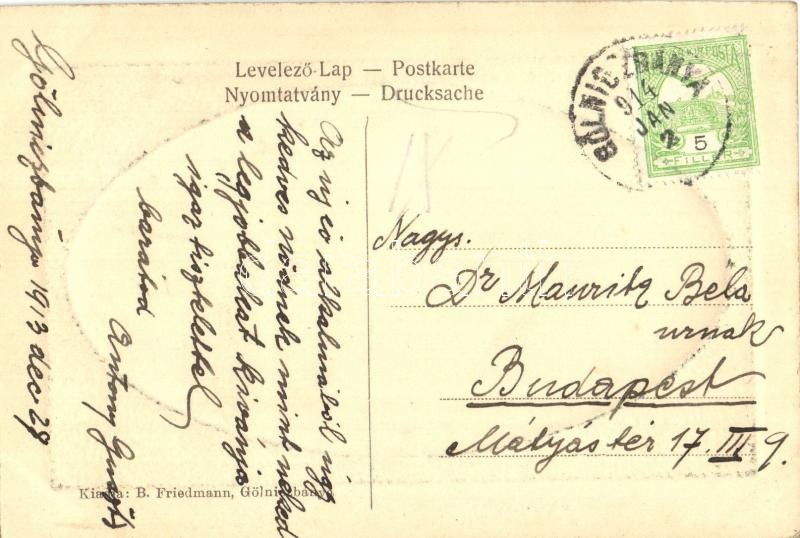 Levelező-Lap — Postkarte
Nyomtatvány — Drucksache
GÖLNICZBÁNYA
914
JAN
2
POSTA
5
FILLÉR
Gölniczbánya 1913 dec 29
Az új év alkalmából úgy
kedves Nődnek mint neked
a legjobbakat kivánja
igaz tisztelettel
barátod
Antony
Nagys.
Dr Mauritz Béla
urnak
Budapest
Mátyás tér 17. III 9.
Kiadja: B. Friedmann, Gölniczbánya